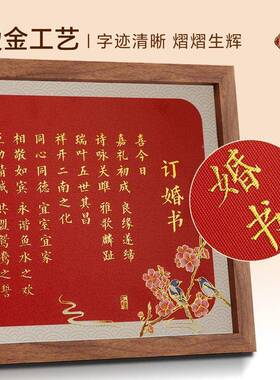 金工艺 | 字迹清晰 熠熠生辉
订婚书
喜今日
嘉礼初成 良缘遂缔
诗咏关雎 雅歌麟趾
瑞叶五世其昌
祥开二南之化
同心同德 宜室宜家
相敬如宾 永谐鱼水之欢
互助精诚 共盟鸳鸯之誓
婚书